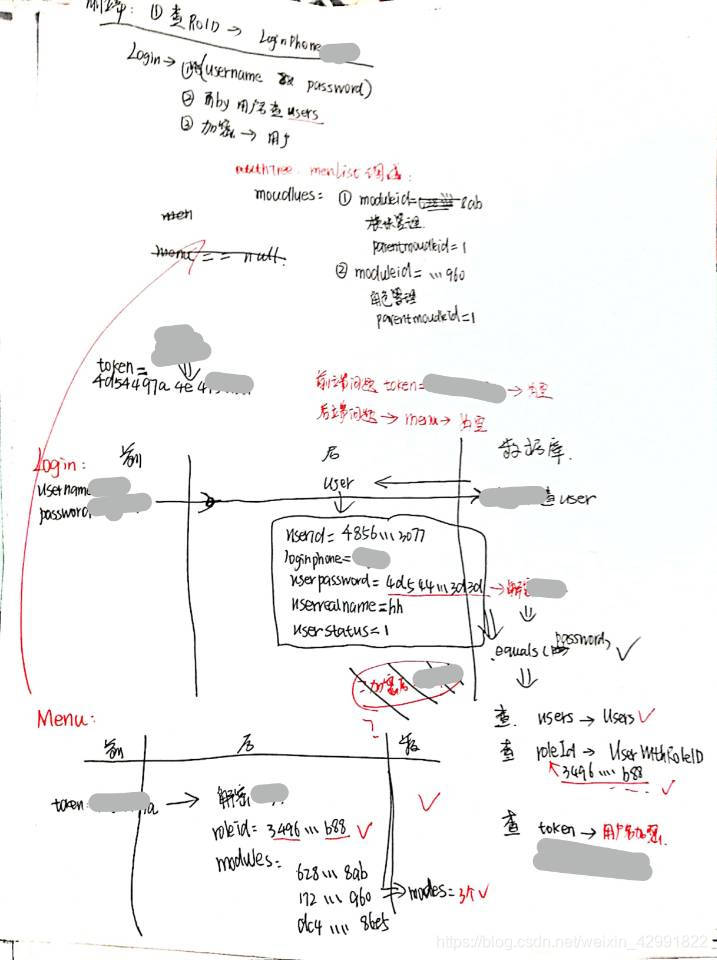 ① 查RoID → LoginPhone
Login → ① (username && password)
② 再by 用户名查users
③ 加密 → 用户
authTree. menList 构成:
moudlyes = ① moduleid= 8ab
模块管理
parentmoudleid=1
② moduleid= ...960
角色管理
parentmoudleid=1
men
menu == null.
token=
4d54497a 4e 4
前端问题 token= → 为空
后端问题 → menu → 为空
Login:
前
后
数据库.
username
password
user
查user
userid= 4856...3077
loginphone=
userpassword = 4d544...3d3d → 解密
userrealname=hh
userstatus=1
.equals( password) ✓
加密后
?
查 users → Users ✓
查 roleId → UserWithRoleID
3496 .... b88 ✓
查 token → 用户名加密.
Menu:
前
后
数
token: a → 解密
roleid= 3496 ... b88 ✓
modules=
628 ... 8ab
172 ... 960 → modes=3个✓
dc4 .... 86e5
https://blog.csdn.net/weixin_42991822